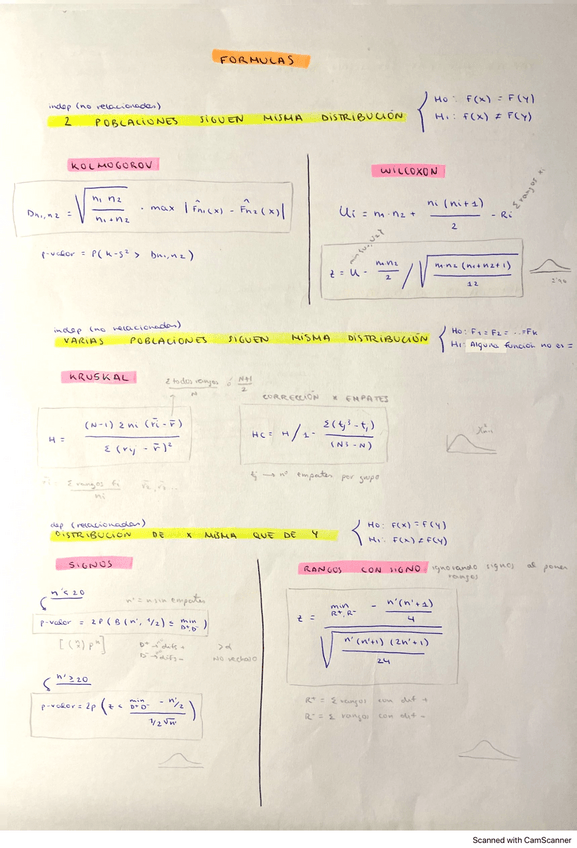 FORMULAS
indep (no relacionadas)
2 POBLACIONES SIGUEN MISMA DISTRIBUCIÓN
H0: F(x) = F(y)
H1: F(x) ≠ F(y)
KOLMOGOROV
Dn1,n2 = √(n1 n2 / n1+n2) · max |F̂n1(x) - F̂n2(x)|
p-valor = P(K-S² > Dn1,n2)
WILCOXON
Ui = n1·n2 + ni(ni+1)/2 - Ri
Σ rangos
z = U - n1·n2/2 / √(n1·n2(n1+n2+1)/12)
indep (no relacionadas)
VARIAS POBLACIONES SIGUEN MISMA DISTRIBUCIÓN
H0: F1=F2= ...=Fk
H1: Alguna función no es =
KRUSKAL
Σ todos rangos / N = N+1/2
H = (N-1) Σ ni (r̄i - r̄) / Σ (rij - r̄)²
Σ rangos / ni
CORRECCIÓN x EMPATES
Hc = H / 1 - Σ(tj³ - tj) / (N³ - N)
tj → nº empates por grupo
dep (relacionadas)
DISTRIBUCIÓN DE X MISMA QUE DE Y
H0: F(x) = F(y)
H1: F(x) ≠ F(y)
SIGNOS
n'<20
n' = n sin empates
p-valor = 2P(B(n', 1/2) ≤ min D+D-)
D+ → difs +
D- → difs -
>α
NO rechazo
n'≥20
p-valor = 2p(z < min D+D- - n'/2 / 1/2√n')
RANGOS CON SIGNO
ignorando signos al poner
rangos
z = min R+,R- - n'(n'+1)/4 / √(n'(n'+1)(2n'+1)/24)
R+ = Σ rangos con dif +
R- = Σ rangos con dif -
Scanned with CamScanner